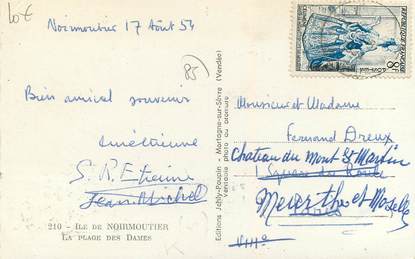 10€
Noirmoutier 17 Août 54
85
Bien amical souvenir
S. R. Etienne
Jean Michel
210 - ILE DE NOIRMOUTIER
LA PLAGE DES DAMES
Editions Jehly-Poupin - Mortagne-sur-Sèvre (Vendée)
Véritable photo au bromure
REPUBLIQUE FRANÇAISE
8F
Monsieur et Madame
Fernand Dreux
Chateau du Mont St Martin
1 Square du
Meurthe et Moselle
Paris
VIIIe